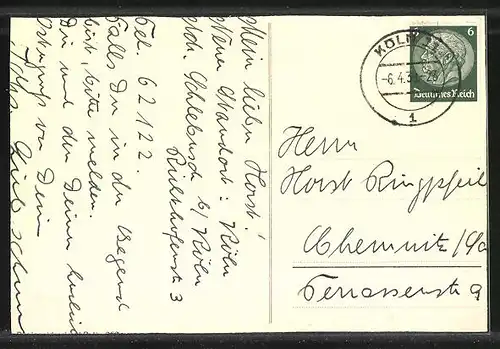 Mein lieber Horst!
Neuer Standort: Köln
Adr. Schlebusch b/ Köln
3
Tel. 62122.
Falls Du in der Gegend
bist, bitte melden.
Dir und den Deinen herzliche
Ostergruß von Dein
KÖLN
-6.4.3
1
6
Deutsches Reich
Herrn
Horst Ringpfeil
Chemnitz /Sa
Terrassenstr 9